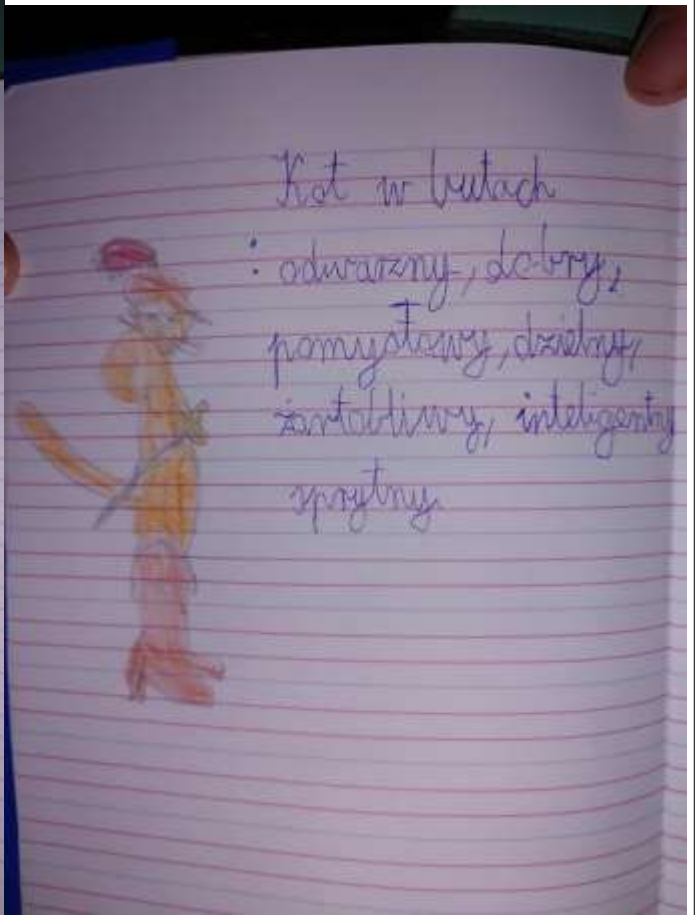 Kot w butach
: odważny, dobry,
pomysłowy, dzielny,
żartobliwy, inteligentny
sprytny.